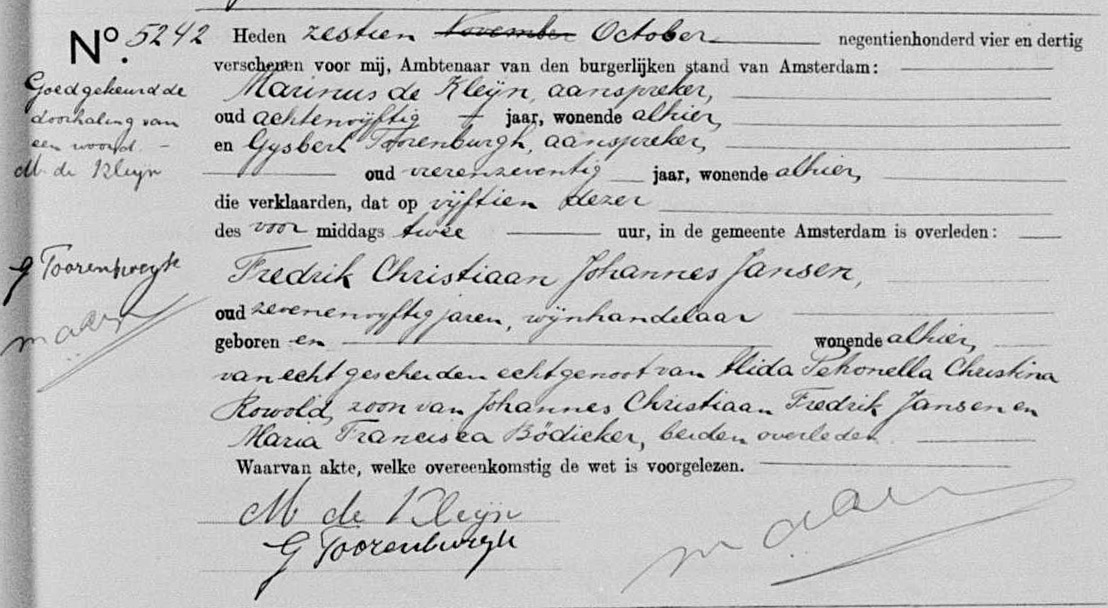 No. 5242
Heden zestien ~~November~~ October negentienhonderd vier en dertig
verschenen voor mij, Ambtenaar van den burgerlijken stand van Amsterdam:
Marinus de Kleijn, aanspreker,
oud achtenvijftig jaar, wonende alhier,
en Gysbert Toorenburgh, aanspreker,
oud vierenzeventig jaar, wonende alhier,
die verklaarden, dat op vijftien dezer
des voor middags twee uur, in de gemeente Amsterdam is overleden:
Fredrik Christiaan Johannes Jansen,
oud zevenenvyftig jaren, wijnhandelaar
geboren en wonende alhier,
van echt gescheiden echtgenoot van Alida Petronella Christina
Rowold, zoon van Johannes Christiaan Fredrik Jansen en
Maria Francisca Bödicker, beiden overleden.
Waarvan akte, welke overeenkomstig de wet is voorgelezen.
M de Kleijn
G Toorenburgh
Goedgekeurd de
doorhaling van
een woord.
M de Kleijn
G Toorenburgh